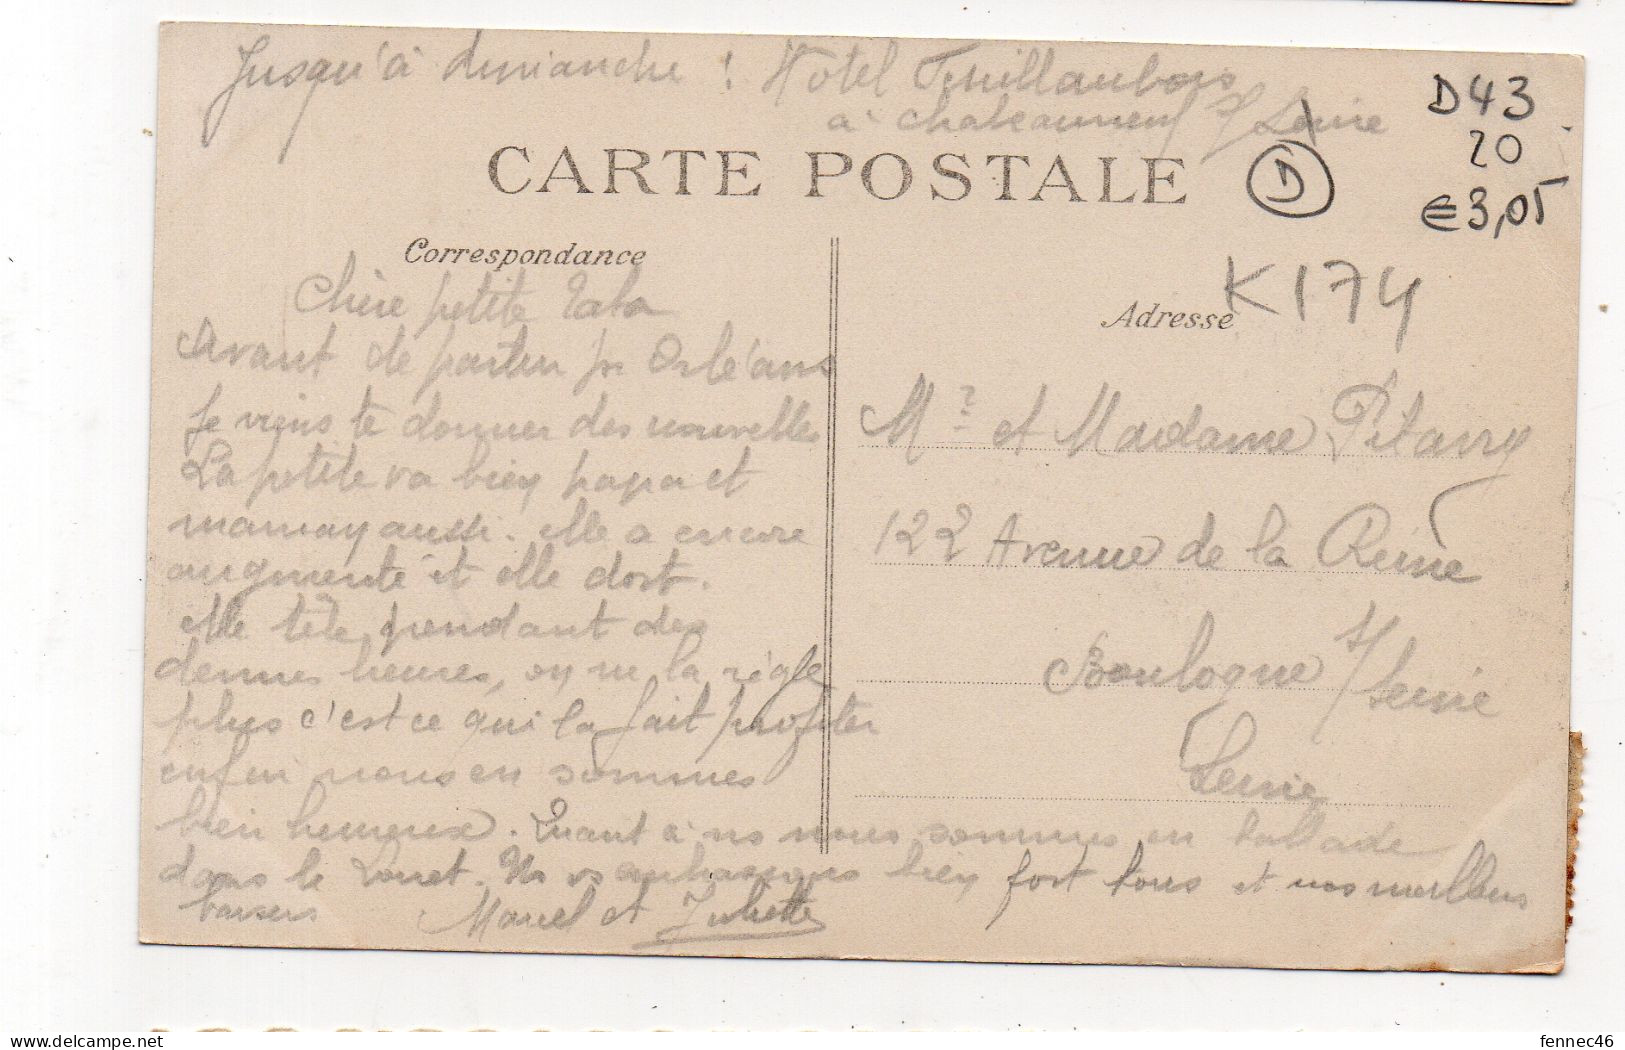 Jusqu'à dimanche : Hotel
à Chateauneuf s/ Loire
D43
20
€3,05
CARTE POSTALE
D
Correspondance
K174
Adresse
Chère petite Tata
Avant de partir pr Orléans
Je viens te donner des nouvelles
La petite va bien papa et
maman aussi. elle a encore
augmenté et elle dort.
elle tète pendant des
demies heures, on ne la règle
plus c'est ce qui la fait profiter
enfin nous en sommes
bien heureux. Quant à ns nous sommes en ballade
dans le Loiret. Ns vs embrassons bien fort tous et nos meilleurs
baisers Marcel et Juliette
Mr et Madame Pitavy
122 Avenue de la Reine
Boulogne s/ Seine
Seine
fennec46